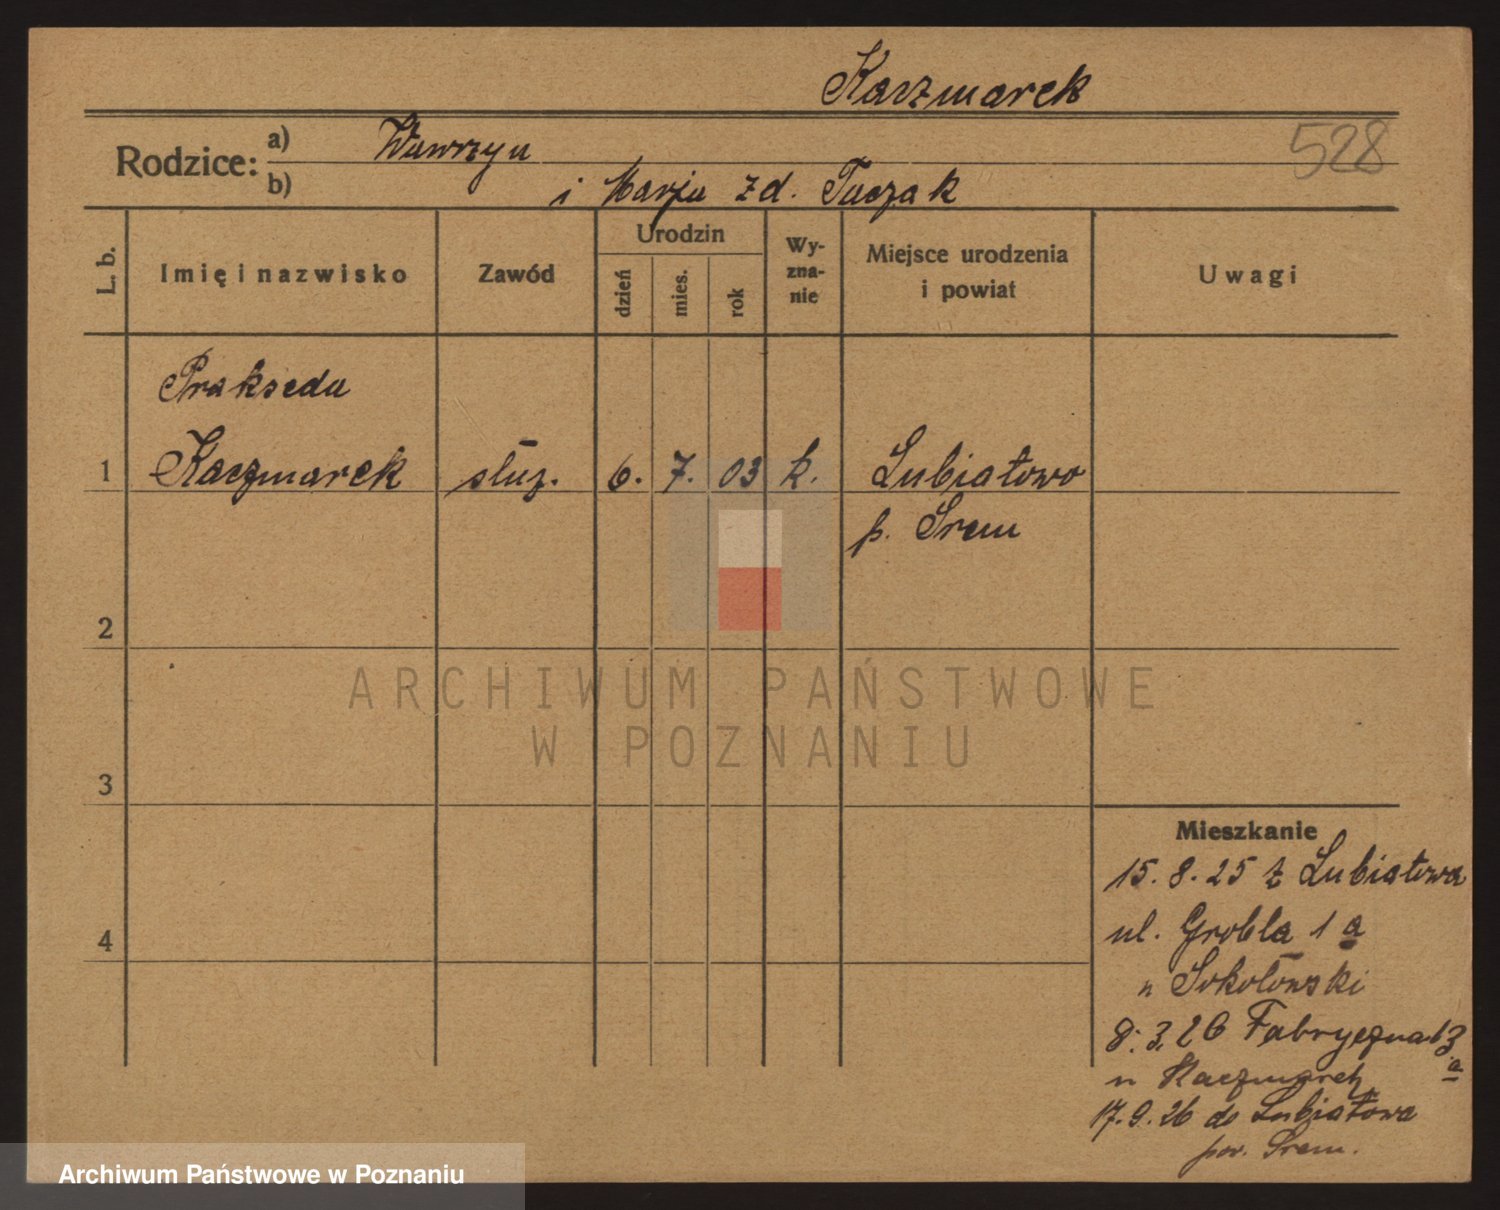 Kaczmarek
528
Rodzice: a) Wawrzyn
b) i Marja zd. Taczak
L. b.
Imię i nazwisko
Zawód
Urodzin
dzień
mies.
rok
Wy-
zna-
nie
Miejsce urodzenia
i powiat
Uwagi
Prakseda
1 Kaczmarek służ. 6. 7. 03 k. Lubiatowo
p. Śrem
2
3
4
Mieszkanie
15. 8. 25 z Lubiatowa
ul. Grobla 1 a
u Sokołowski
8. 3. 26 Fabryczna 13
a
u Kaczmarek
17. 9. 26 do Lubiatowa
pow. Śrem.
ARCHIWUM PAŃSTWOWE
W POZNANIU
Archiwum Państwowe w Poznaniu